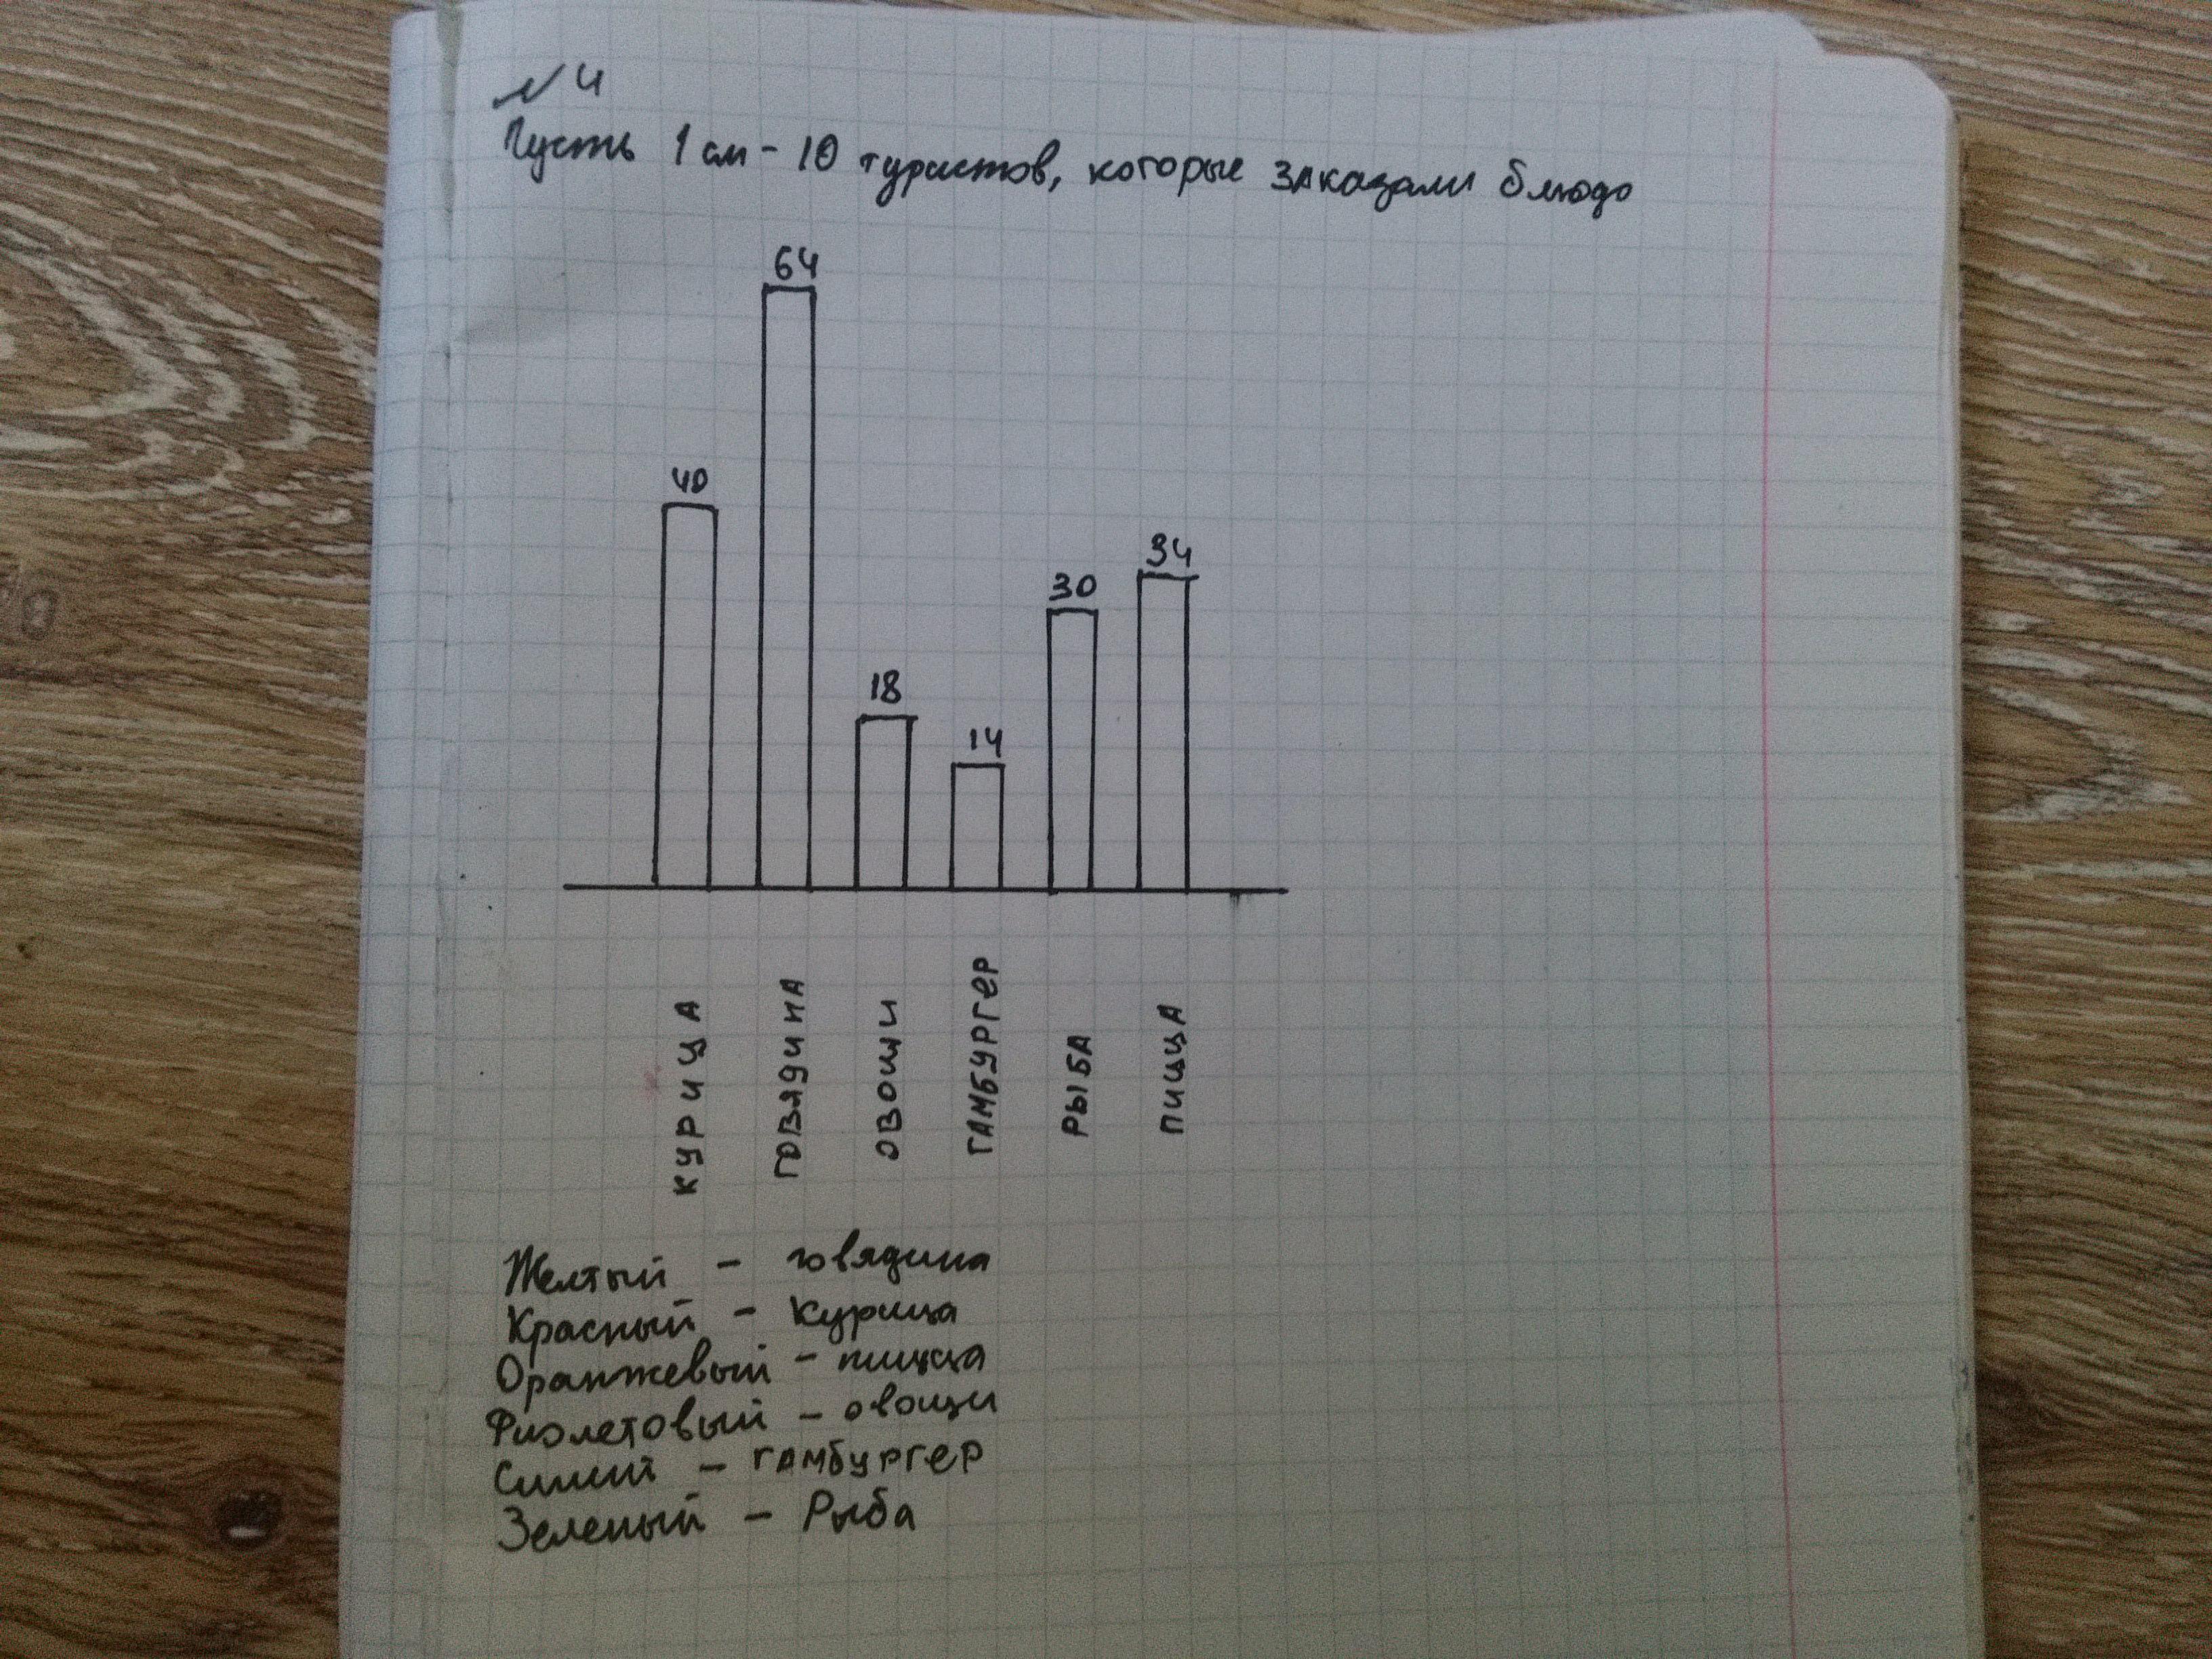 №4
Пусть 1 см - 10 туристов, которые заказали блюдо
64
40
34
30
18
14
КУРИЦА
ГОВЯДИНА
ОВОЩИ
ГАМБУРГЕР
РЫБА
ПИЦЦА
Желтый - говядина
Красный - курица
Оранжевый - пицца
Фиолетовый - овощи
Синий - гамбургер
Зеленый - Рыба